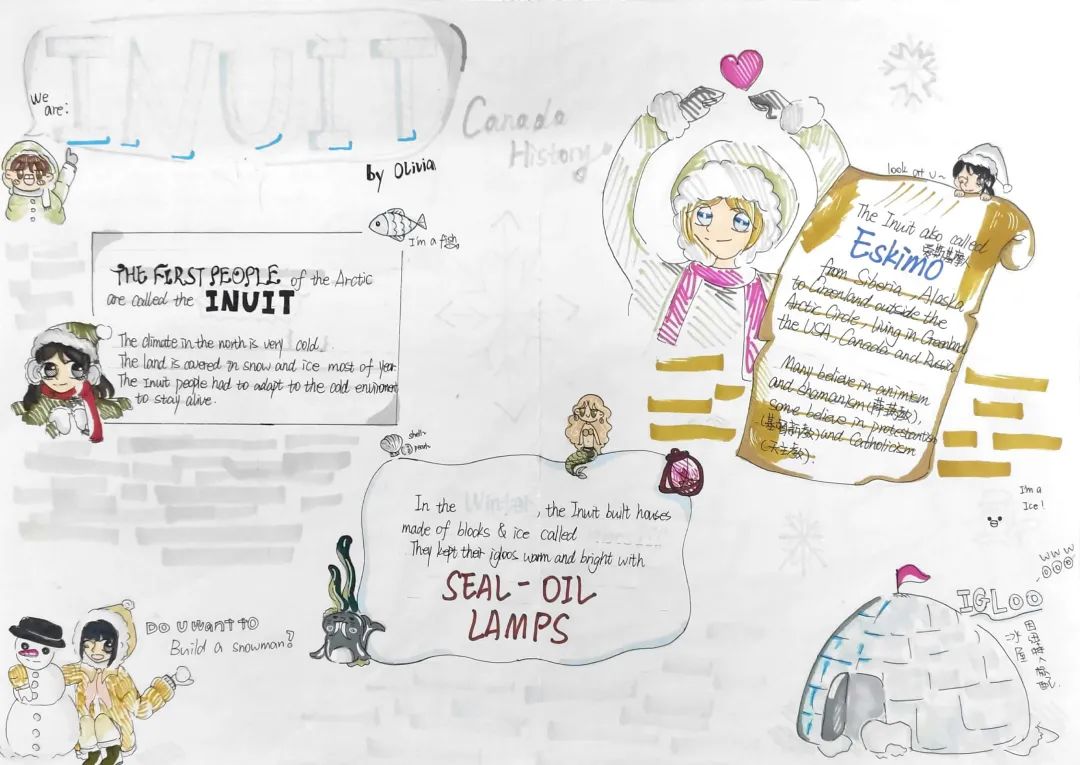 We
are:
INUIT
Canada
History
by Olivia
look at u~
I'm a fish
THE FIRST PEOPLE of the Arctic
are called the INUIT
The climate in the north is very cold.
The land is covered in snow and ice most of year
The Inuit people had to adapt to the cold environment
to stay alive.
The Inuit also called
Eskimo
爱斯基摩人
from Siberia, Alaska
to Greenland outside the
Arctic Circle, living in Greenland
the USA, Canada and Russia.
Many believe in animism
and shamanism(萨满教),
some believe in protestantism
(基督新教)and Catholicism
(天主教).
shell~
pearl~
In the Winter, the Inuit built houses
made of blocks & ice called
They kept their igloos warm and bright with
SEAL-OIL
LAMPS
I'm a
Ice!
Do U WANT TO
Build a snowman?
WWW
OOO
IGLOO
冰屋